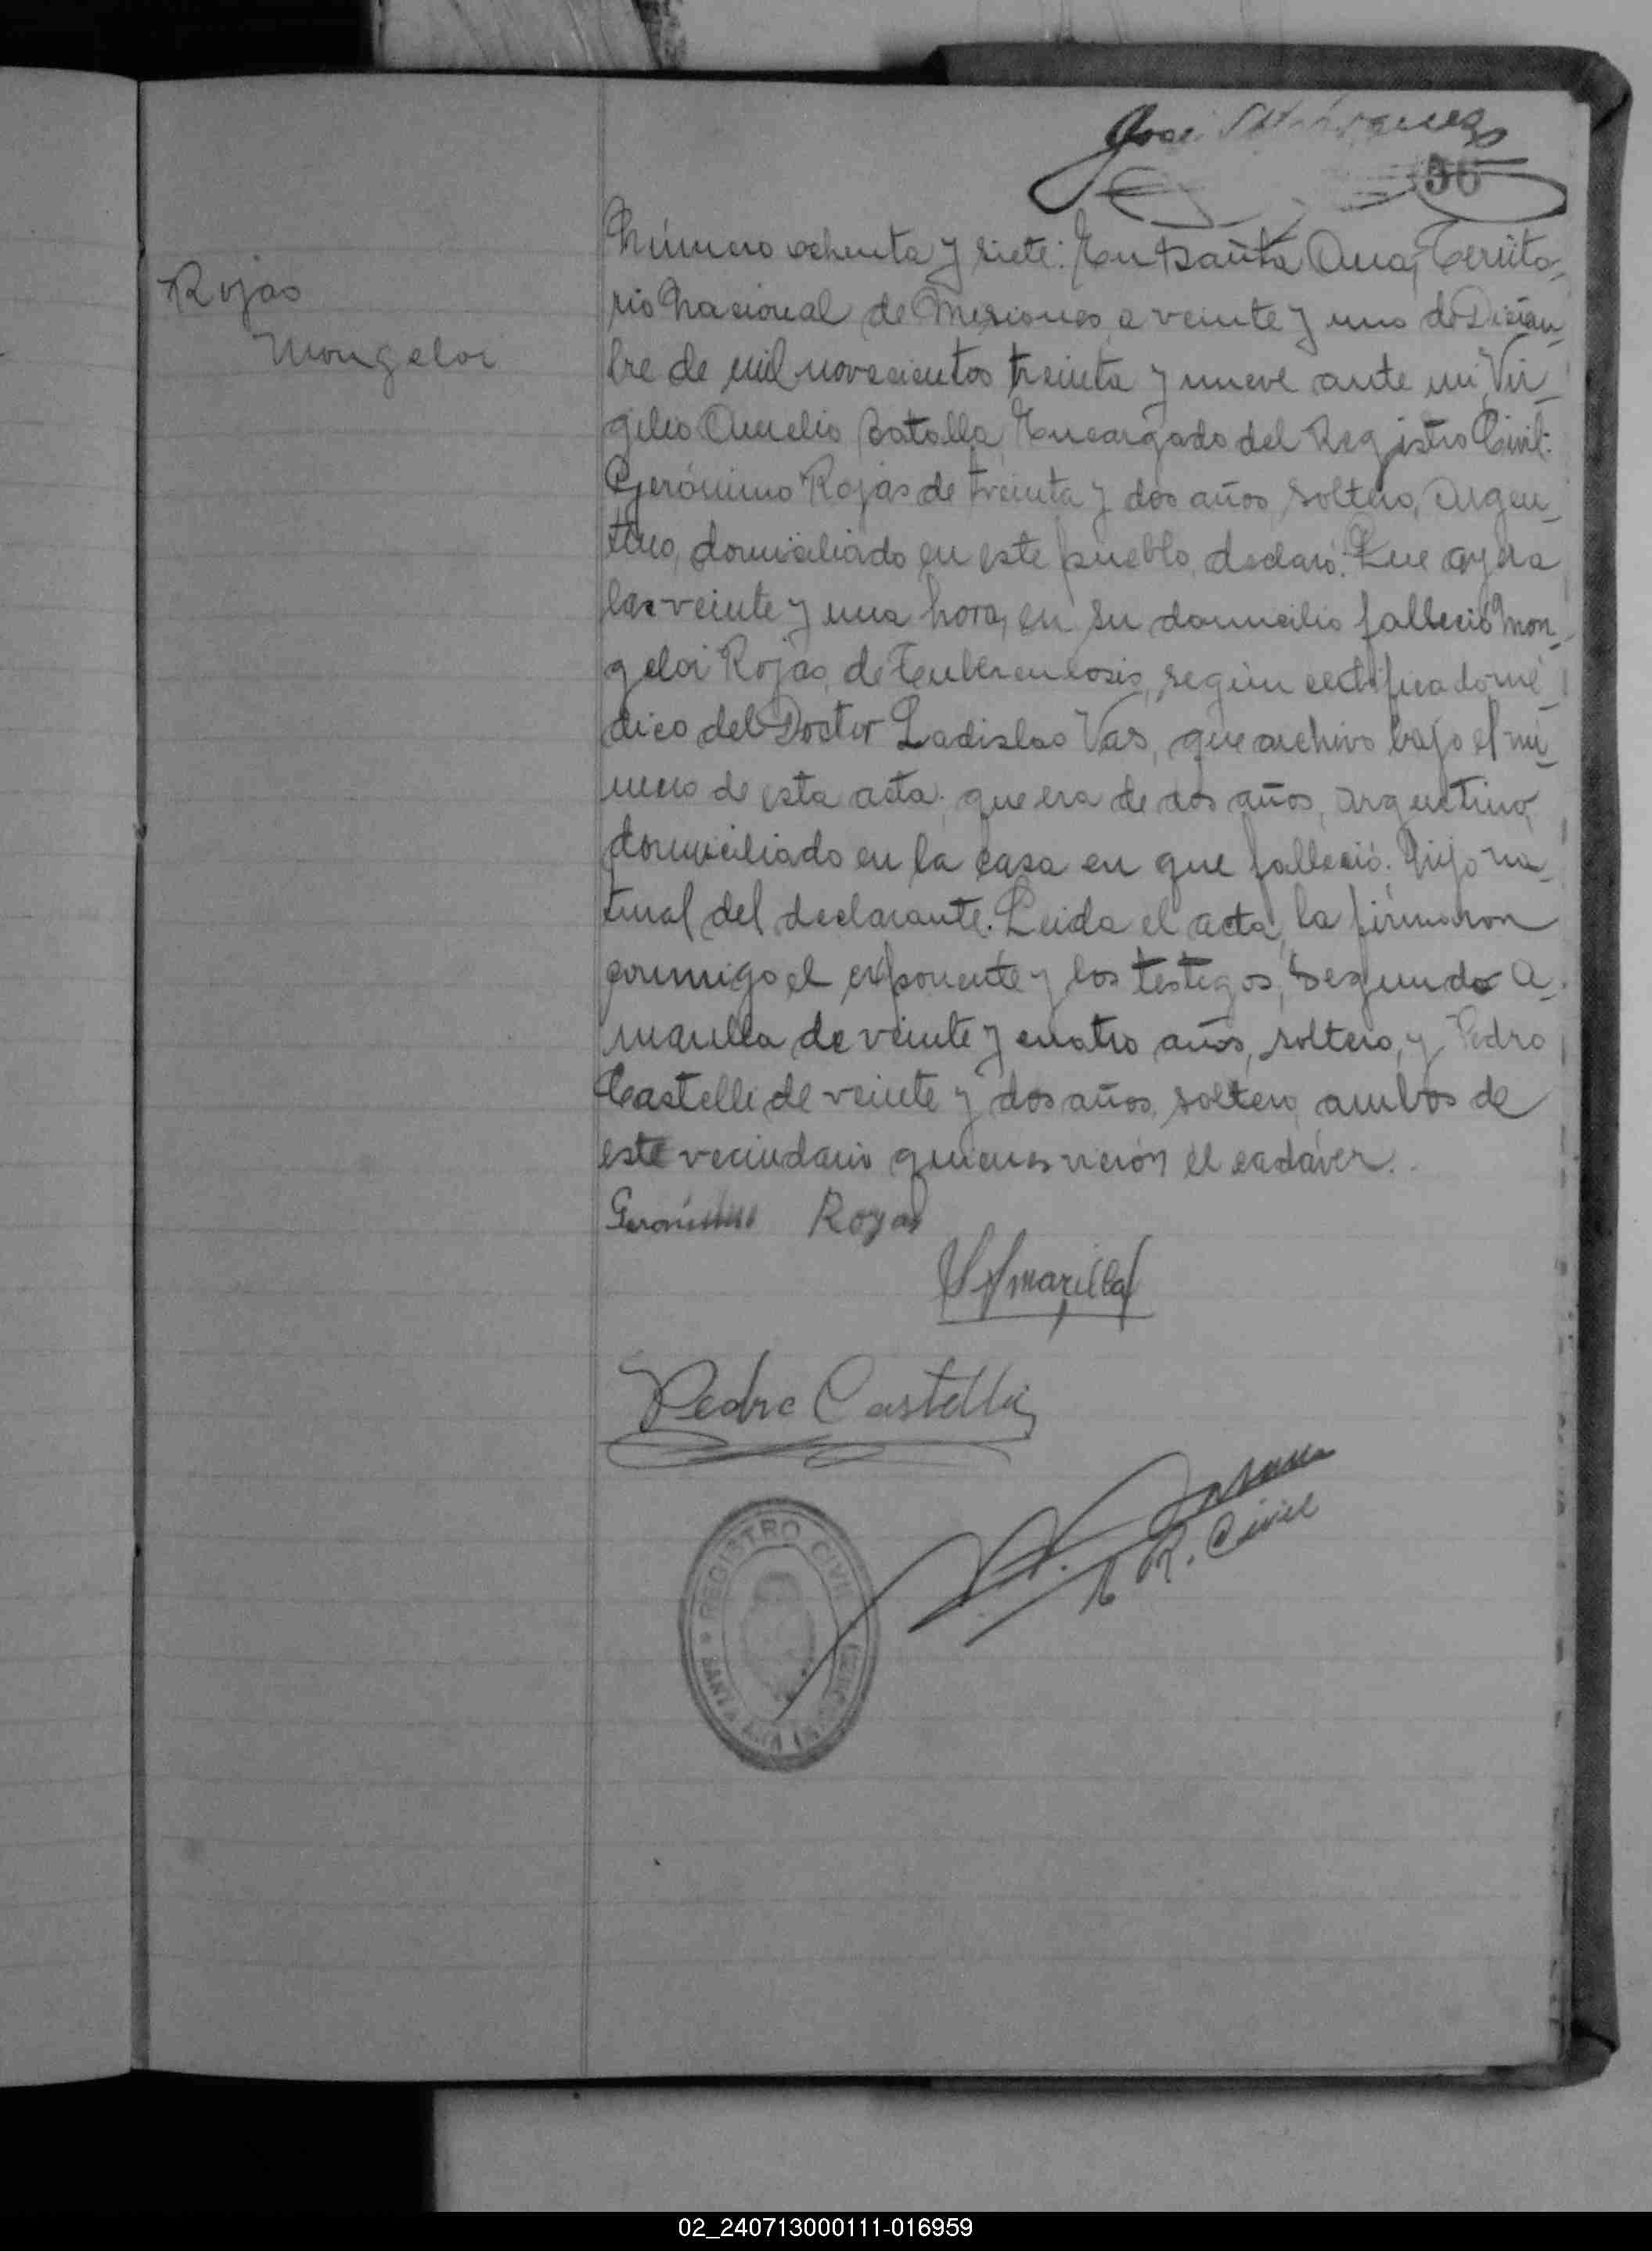 José
56
Rojas
Mongeloi
Número ochenta y siete: En Santa Ana, Territo-
rio Nacional de Misiones, a veinte y uno de Diciem-
bre de mil novecientos treinta y nueve ante mi, Vir-
gilio Aurelio Batalla, Encargado del Registro Civil:
Gerónimo Rojas de treinta y dos años, soltero, Argen-
tino, domiciliado en este pueblo, declaró: Que ayer a
las veinte y una hora, en su domicilio falleció Mon-
geloi Rojas, de Tuberculosis, según certificado mé-
dico del Doctor Ladislao Vas, que archivo bajo el nú-
mero de esta acta; que era de dos años, argentino,
domiciliado en la casa en que falleció. Hijo na-
tural del declarante. Leida el acta, la firmaron
conmigo el exponente y los testigos, Segundo A-
marilla de veinte y cuatro años, soltero, y Pedro
Castelli de veinte y dos años, soltero, ambos de
este vecindario quienes viéron el cadáver.
Gerónimo Rojas
S Amarilla
Pedro Castelli
R. Civil
REGISTRO CIVIL
SANTA ANA (MISIONES)
02_240713000111-016959